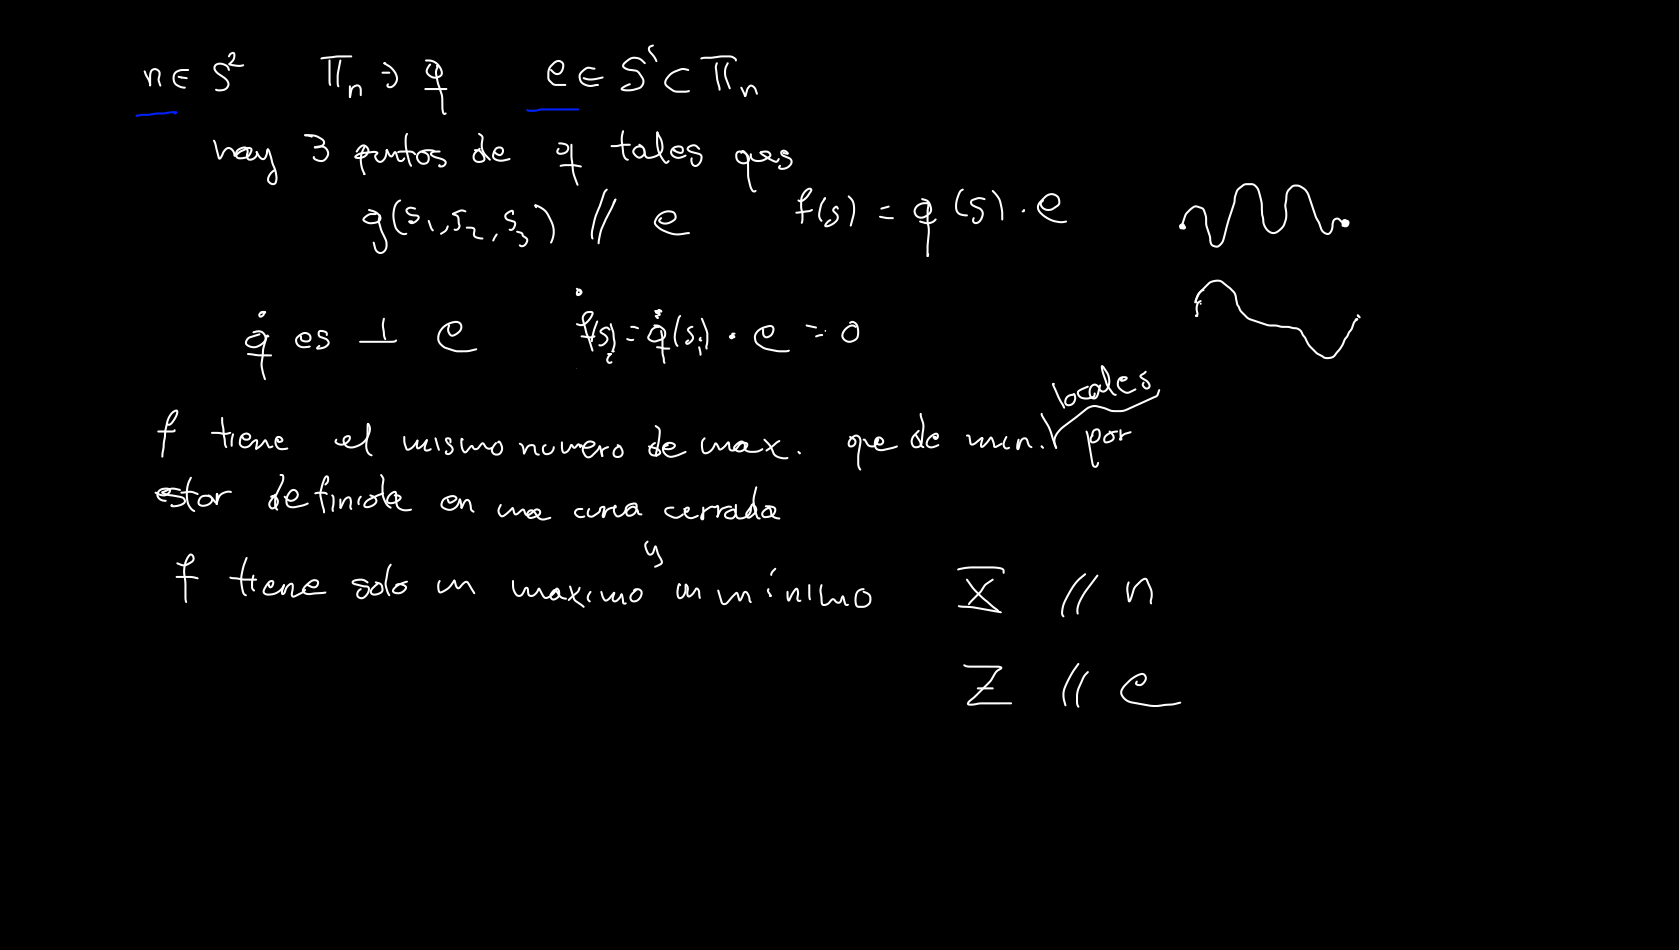 n ∈ S² Πn ∋ q e ∈ S¹ ⊂ Πn
hay 3 puntos de q tales que
g(s₁,s₂,s₃) // e f(s) = q(s) · e
q̇ es ⊥ e ḟ(sᵢ) = q̇(sᵢ) · e = 0
locales
f tiene el mismo numero de max. que de min. por
estar definida en una curva cerrada
f tiene solo un maximo y un mínimo X // n
Z // e